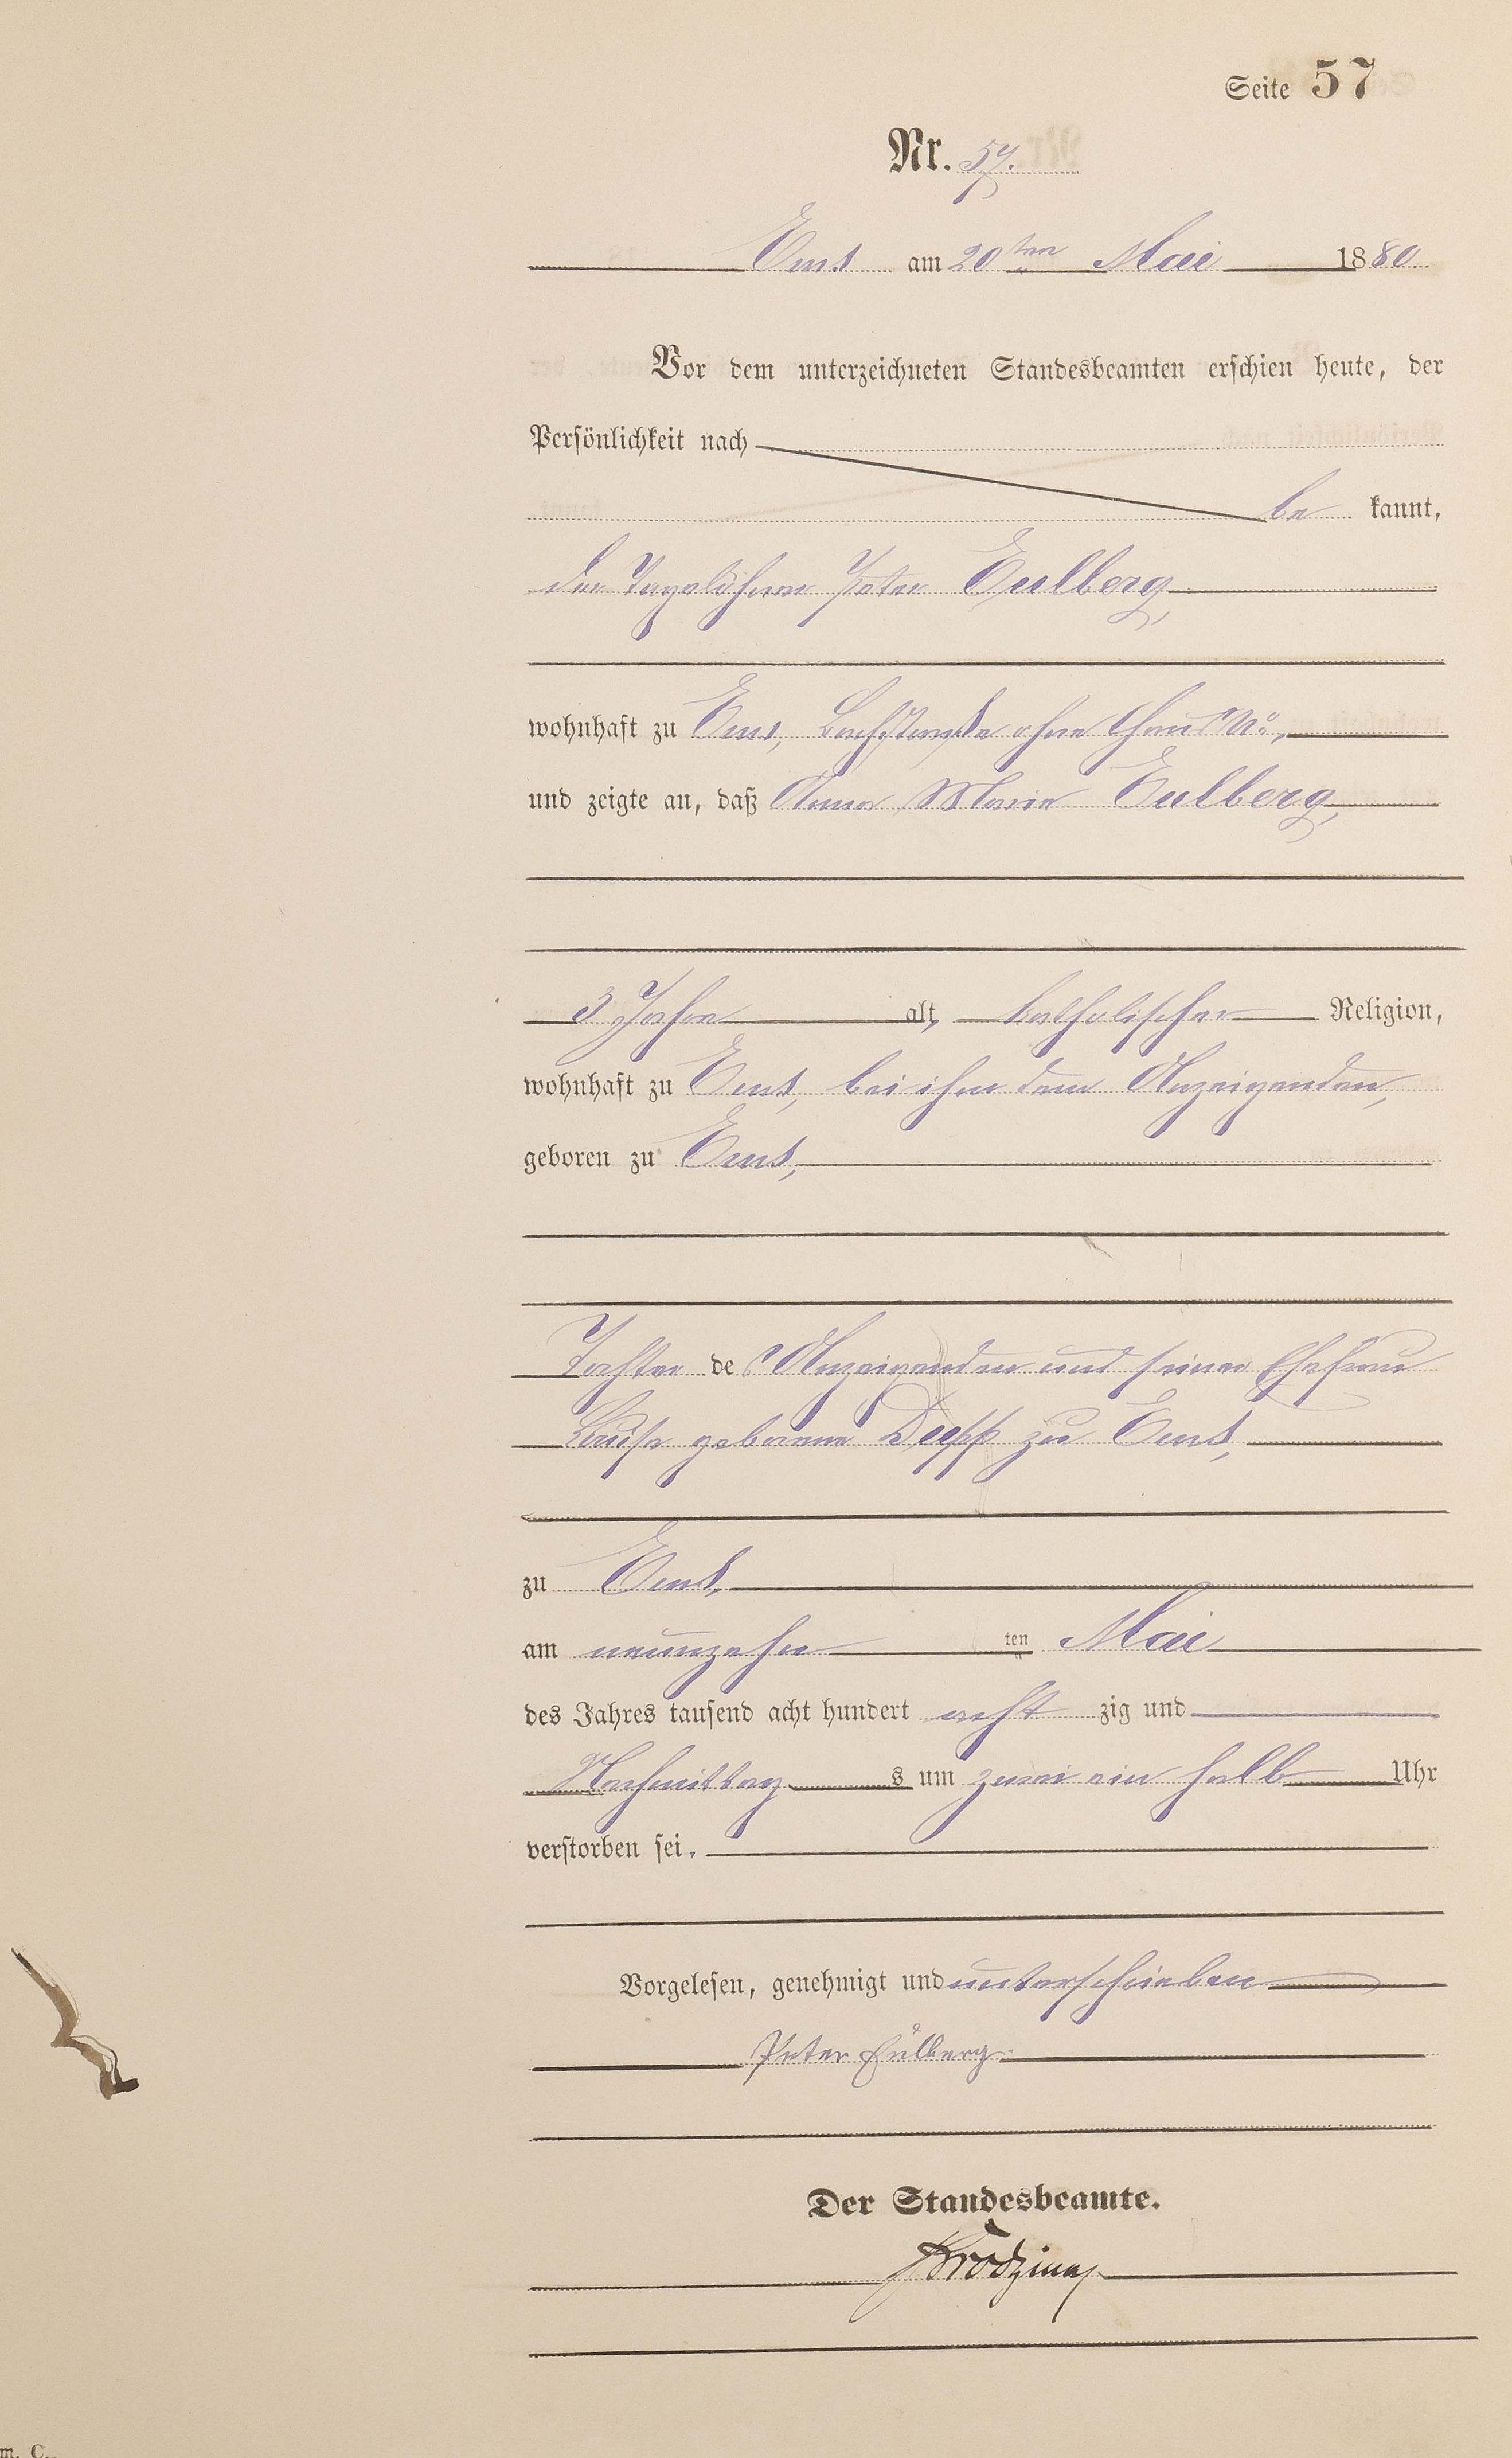 Seite 57
Nr. 57.
Ems am 20ten Mai 1880
Vor dem unterzeichneten Standesbeamten erschien heute, der
Persönlichkeit nach
be kannt,
der Tagelöhner Peter Eulberg,
wohnhaft zu Ems, Bachstraße ohne Haus No,
und zeigte an, daß Anna Maria Eulberg,
3 Jahre alt, katholischer Religion,
wohnhaft zu Ems, bei ihm dem Anzeigenden,
geboren zu Ems,
Tochter des Anzeigenden und seiner Ehefrau
Louise geborene zu Ems,
zu Ems,
am neunzehn ten Mai
des Jahres tausend acht hundert acht zig und
Nachmittag s um zwei ein halb Uhr
verstorben sei.
Vorgelesen, genehmigt und unterschrieben
Peter Eülberg
Der Standesbeamte.
m. C.